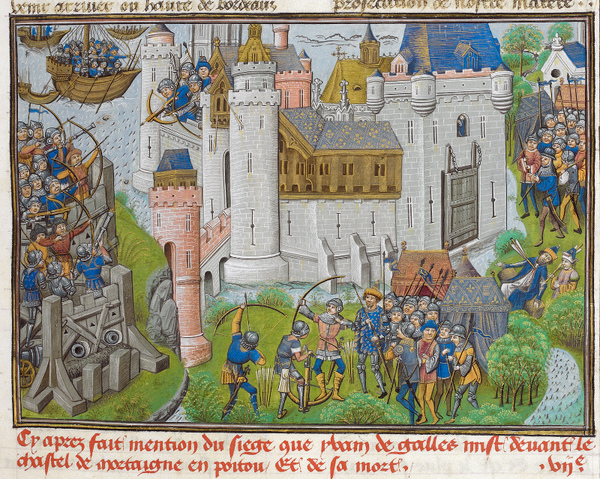 venir arriver ou havre de bordeaux
prosecution de nostre matere
Cy aprez fait mention du siege que yvain de galles mist devant le
chastel de mortaigne en poitou Et de sa mort. vij e